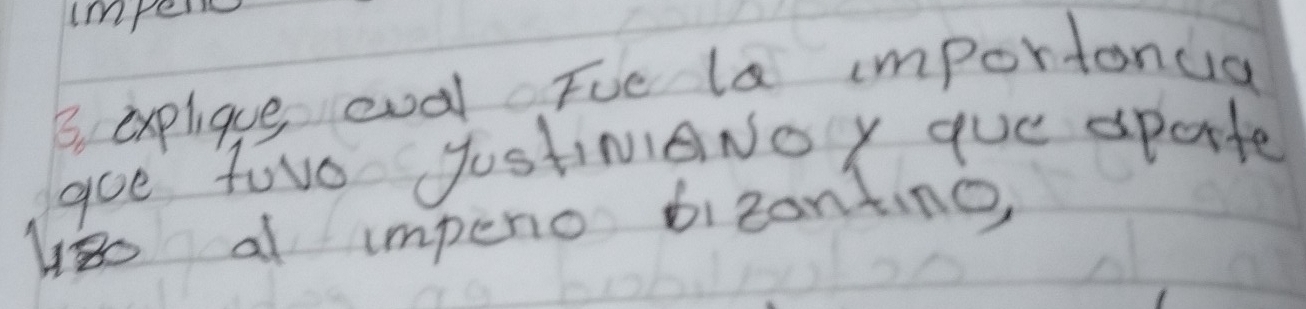 3. explique, cual Fue la importancia
que tuvo JustiNiANO y que aporte
hizo al imperio bizantino,